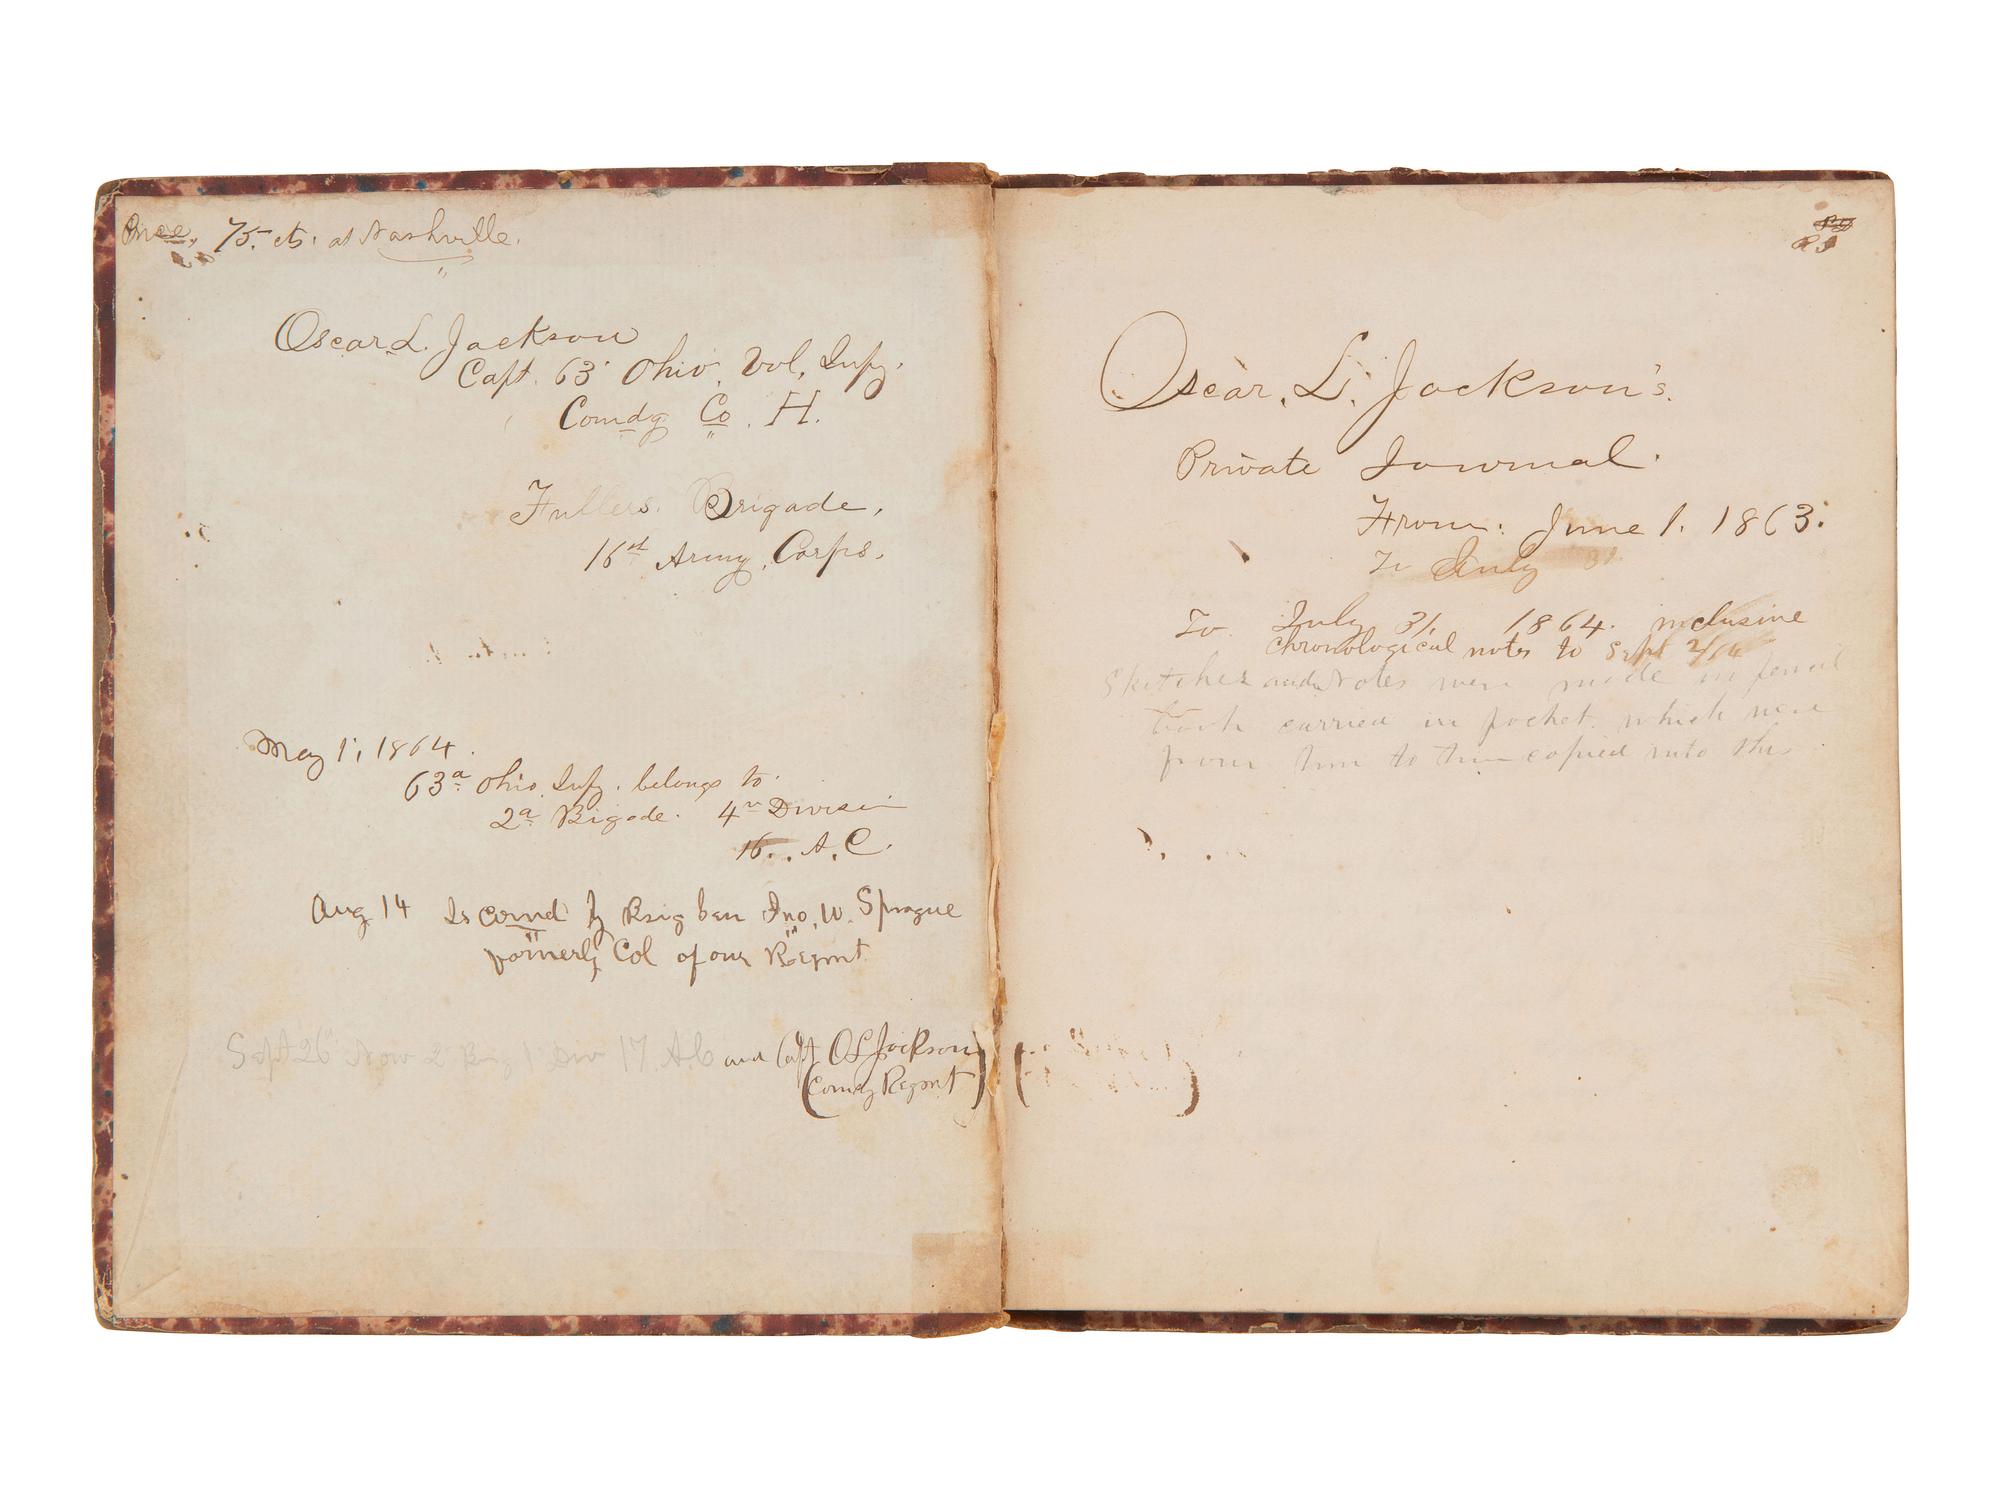 Price, 75 cts. at Nashville.
Oscar L. Jackson
Capt. 63 Ohio Vol, Infy.
Comdg Co. H.
Fullers Brigade,
16st Army Corps.
May 1, 1864.
63d Ohio Infy. belongs to
2d Brigade. 4th Division
16.. A.C.
Aug 14 Is comd by Brig Gen Jno, W. Sprague
formerly Col of our Regmt
Sept 26 Now 2 Brig 1 Div 17 A.C and Capt OL Jackson
(Comdg Regmt)
Oscar, L. Jackson's.
Private Journal.
From: June 1. 1863.
To July 31
To July 31, 1864. inclusive
chronological notes to Sept 2/64
Sketches and Notes were made in pencil
book carried in pocket which were
from time to time copied into this